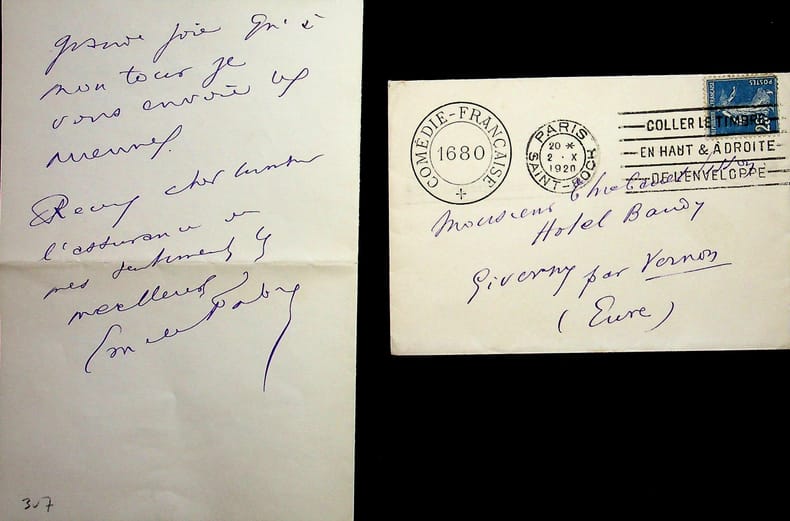 grande joie qu'à
mon tour je
vous envoie les
miennes.
Recevez cher monsieur
l'assurance de
mes sentiments les
meilleurs
Emile Fabre
307
COMÉDIE-FRANÇAISE
1680
PARIS
20 *
2 - X
1920
SAINT-ROCH
POSTES
COLLER LE TIMBRE
EN HAUT & A DROITE
DE L'ENVELOPPE
Monsieur
Hotel Baudy
Giverny par Vernon
(Eure)